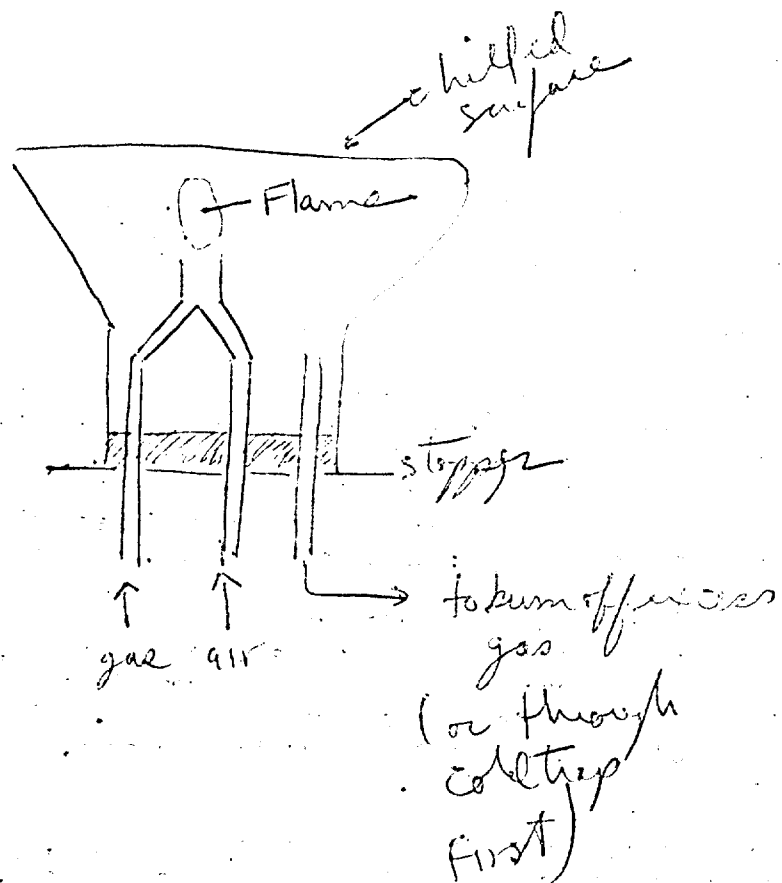 chilled
surface
Flame
stopper
gas air
to burn off excess
gas
(or through
cold trap
first)